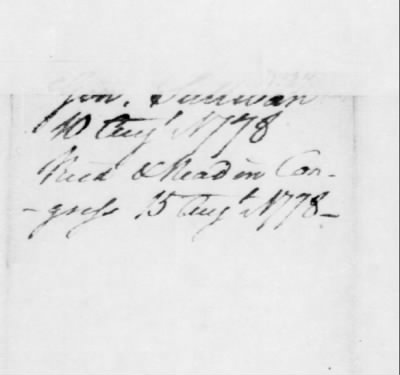 Gen. Sullivan
10 Augt. 1778
Recd & Read in Con-
-gress 15 Augt. 1778-